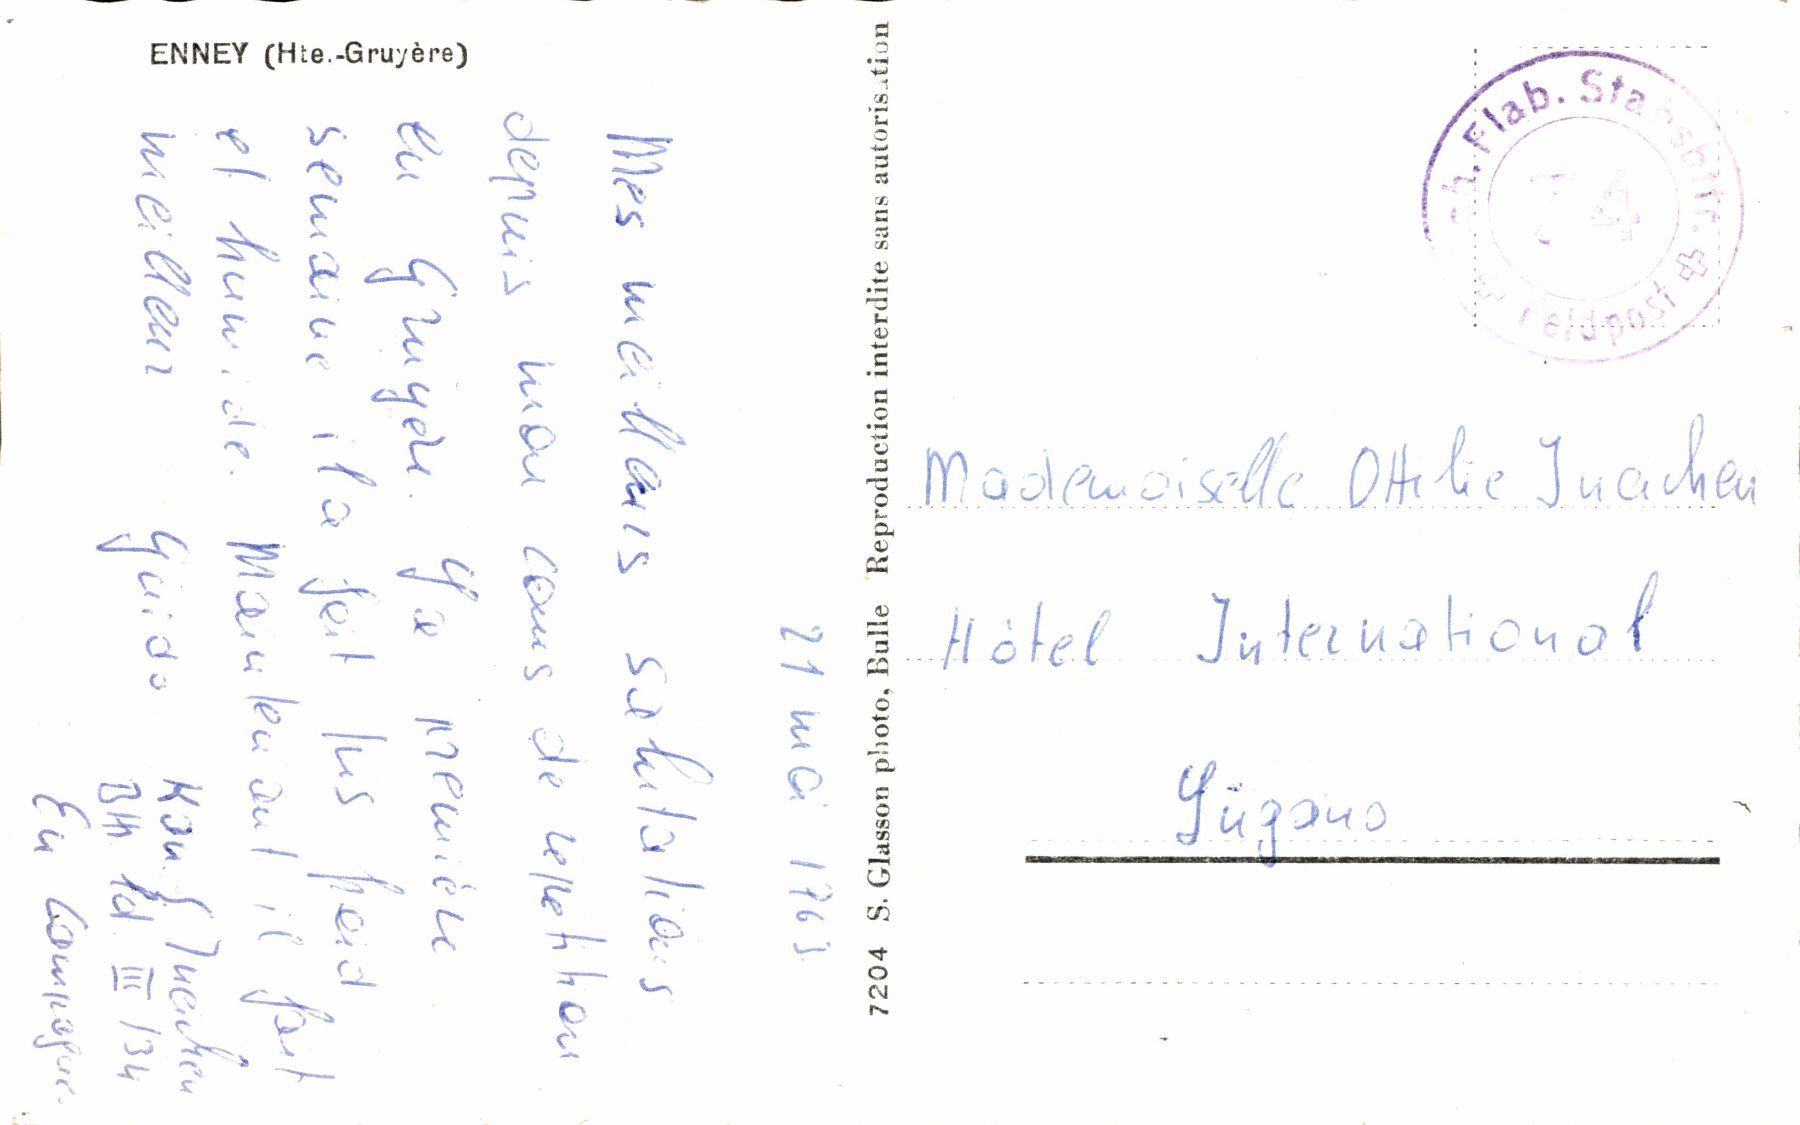 ENNEY (Hte.-Gruyère)
21 mai 1763
Mes meilleurs salutations
depuis mon cours de repetition
en Gruyère. La première
semaine il a fait très froid
et humide. Maintenant il fait
meilleur Guido
Kan. Ineichen
Bttr Ld III / 34
En Campagne.
7204 S. Glasson photo, Bulle Reproduction interdite sans autorisation
Flab. Stabsbttr.
34
Feldpost
Mademoiselle Ottilie Ineichen
Hôtel International
Lügano